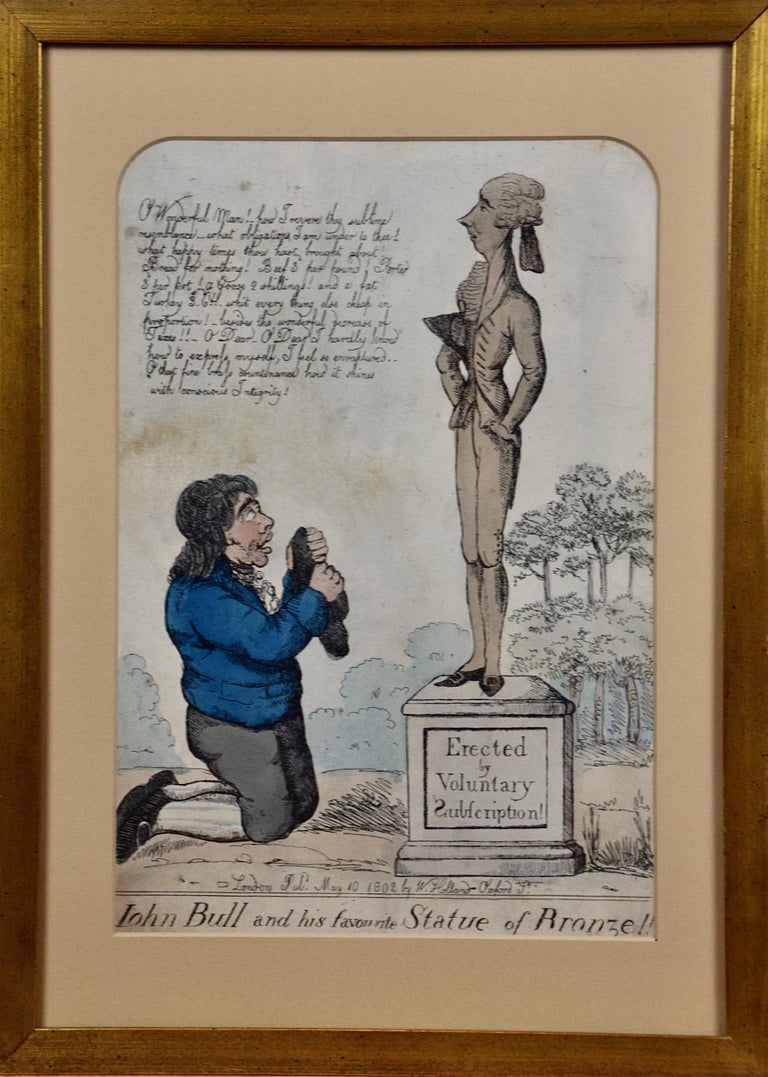 O Wonderful Man! how I revere thy sublime
resemblance - what obligations I am under to thee!
what happy times thou hast brought about!
Bread for nothing! Beef 3d per pound, Porter
3d per pot! a Goose 2 shillings! and a fat
Turkey 3. 6d!! what every thing else cheap in
proportion! - besides the wonderful decrease of
Taxes!! - O Dear - O Dear I hardly know
how to express myself, I feel so enraptured --
O that fine brass countenance how it shines
with conscious Integrity!
Erected
by
Voluntary
Subscription!
London Pubd. May 10 1802 by W. Holland Oxford St.
Iohn Bull and his favourite Statue of Bronze!!